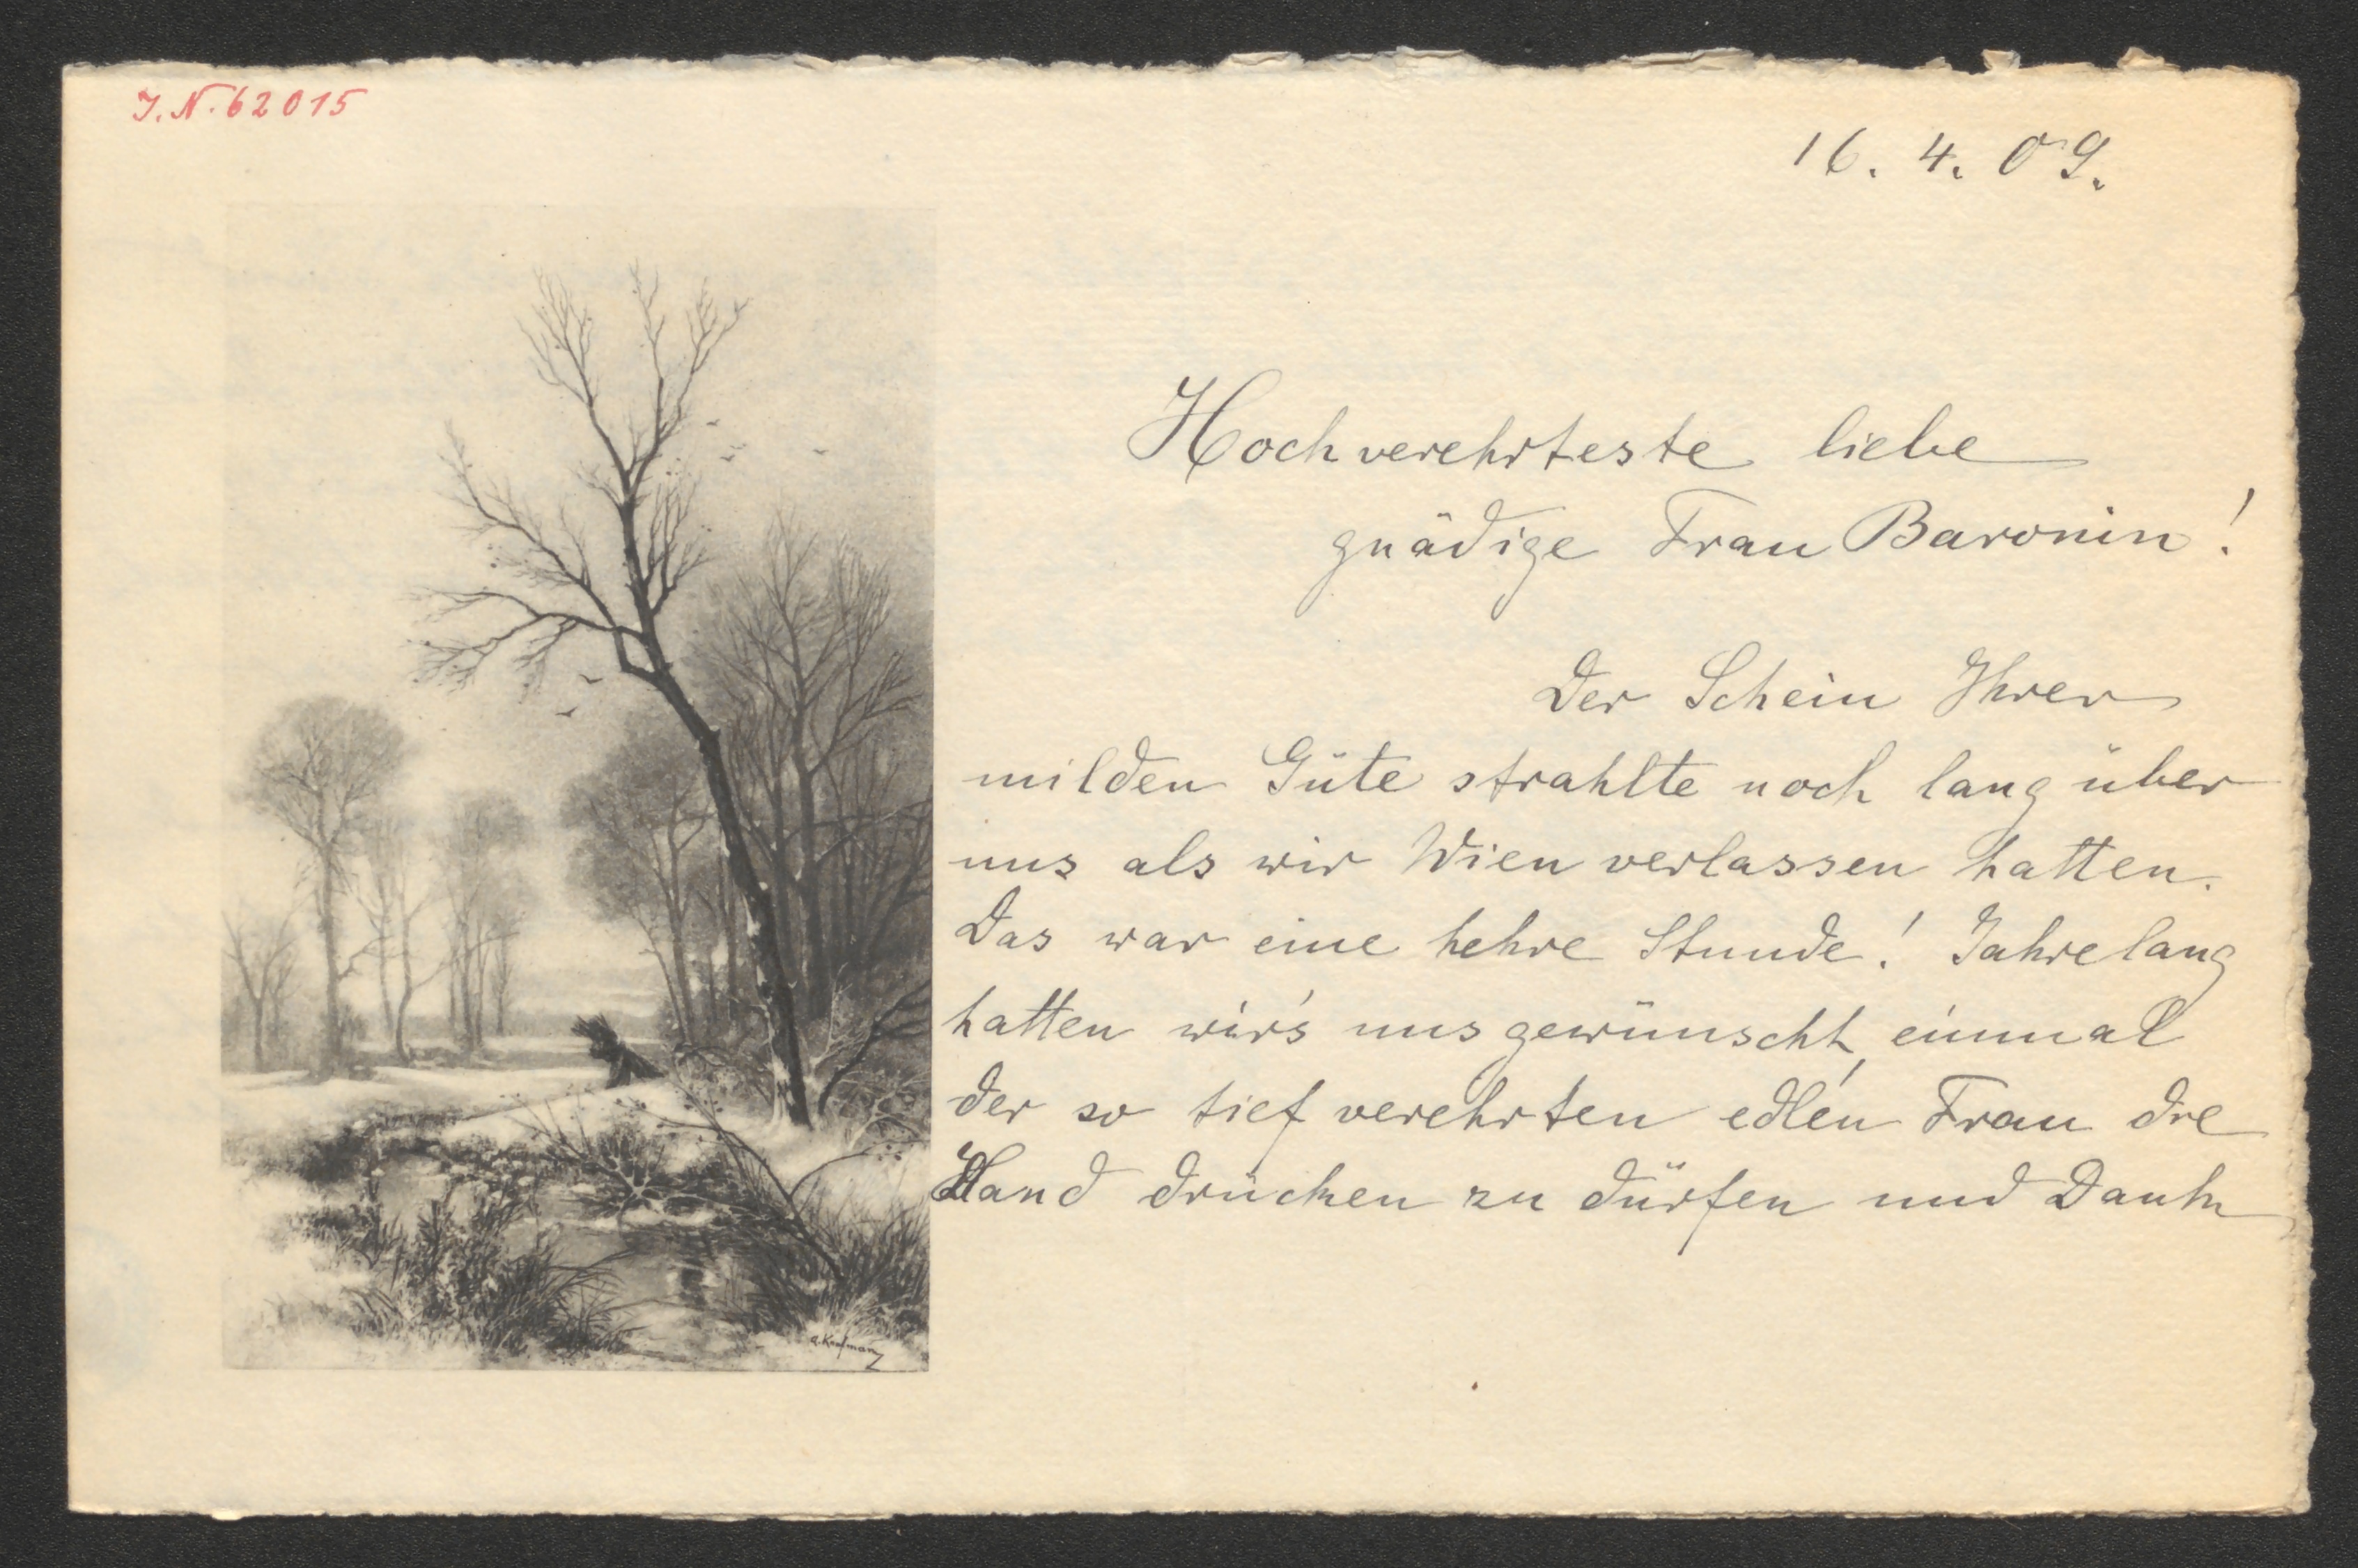 J. N. 62015
16. 4. 09.
Hochverehrteste liebe
gnädige Frau Baronin!
Der Schein Ihrer
milden Güte strahlte noch lang über
uns als wir Wien verlassen hatten.
Das war eine hehre Stunde! Jahrelang
hatten wir's uns gewünscht, einmal
der so tief verehrten edlen Frau die
Hand drücken zu dürfen und Dank
A. Kaufmann